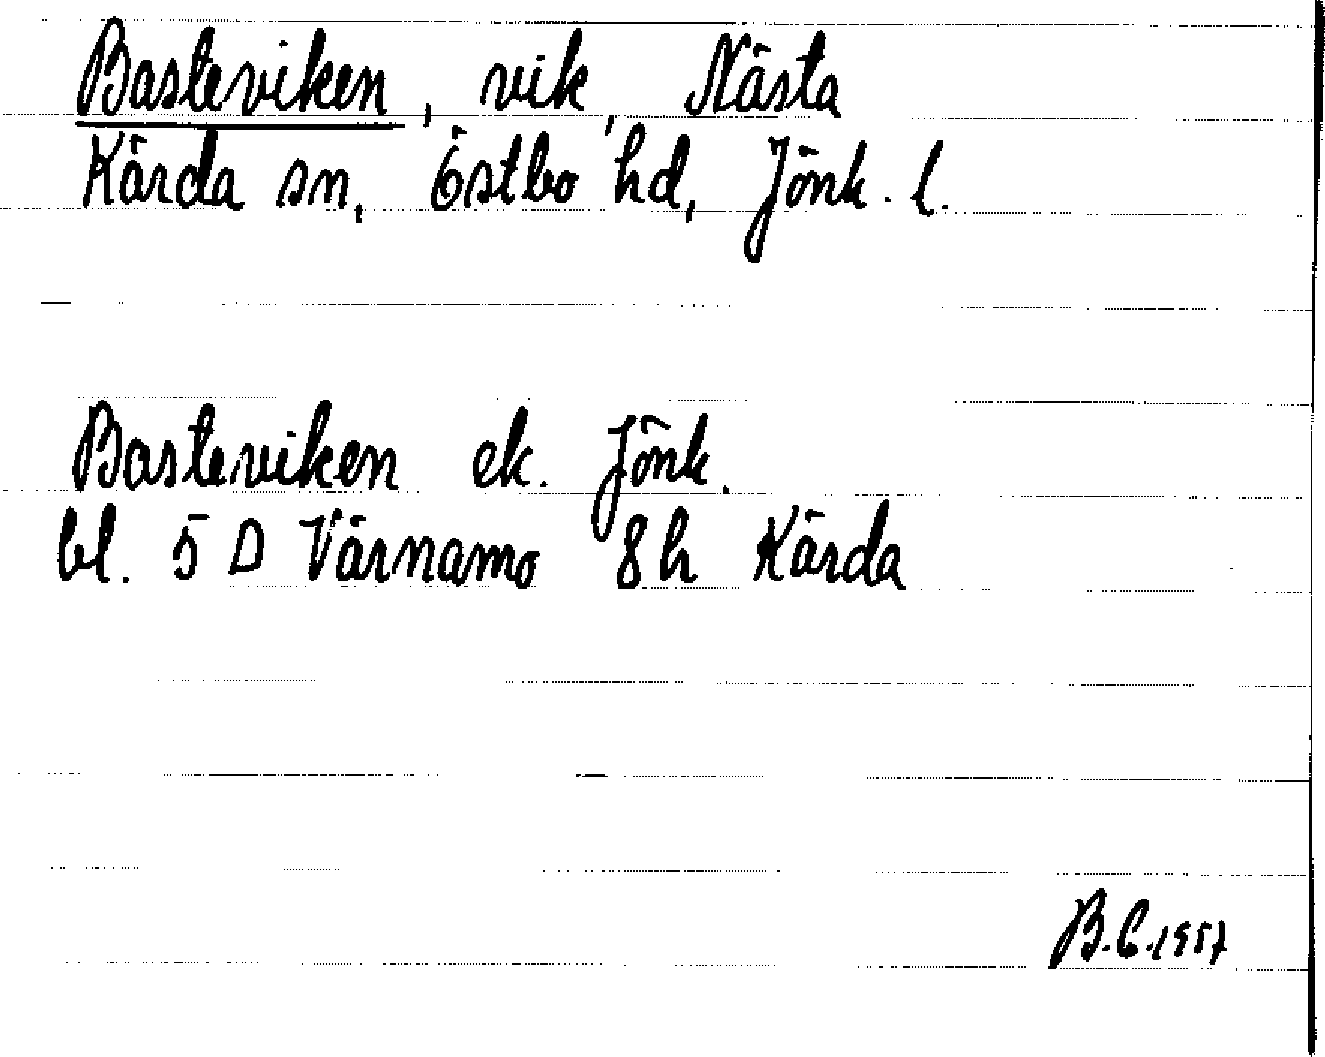 Basteviken, vik, Nästa
Kärda sn, Östbo hd, Jönk. l.
Basteviken ek. Jönk.
bl. 5 D Värnamo 8h Kärda
B.C.1957